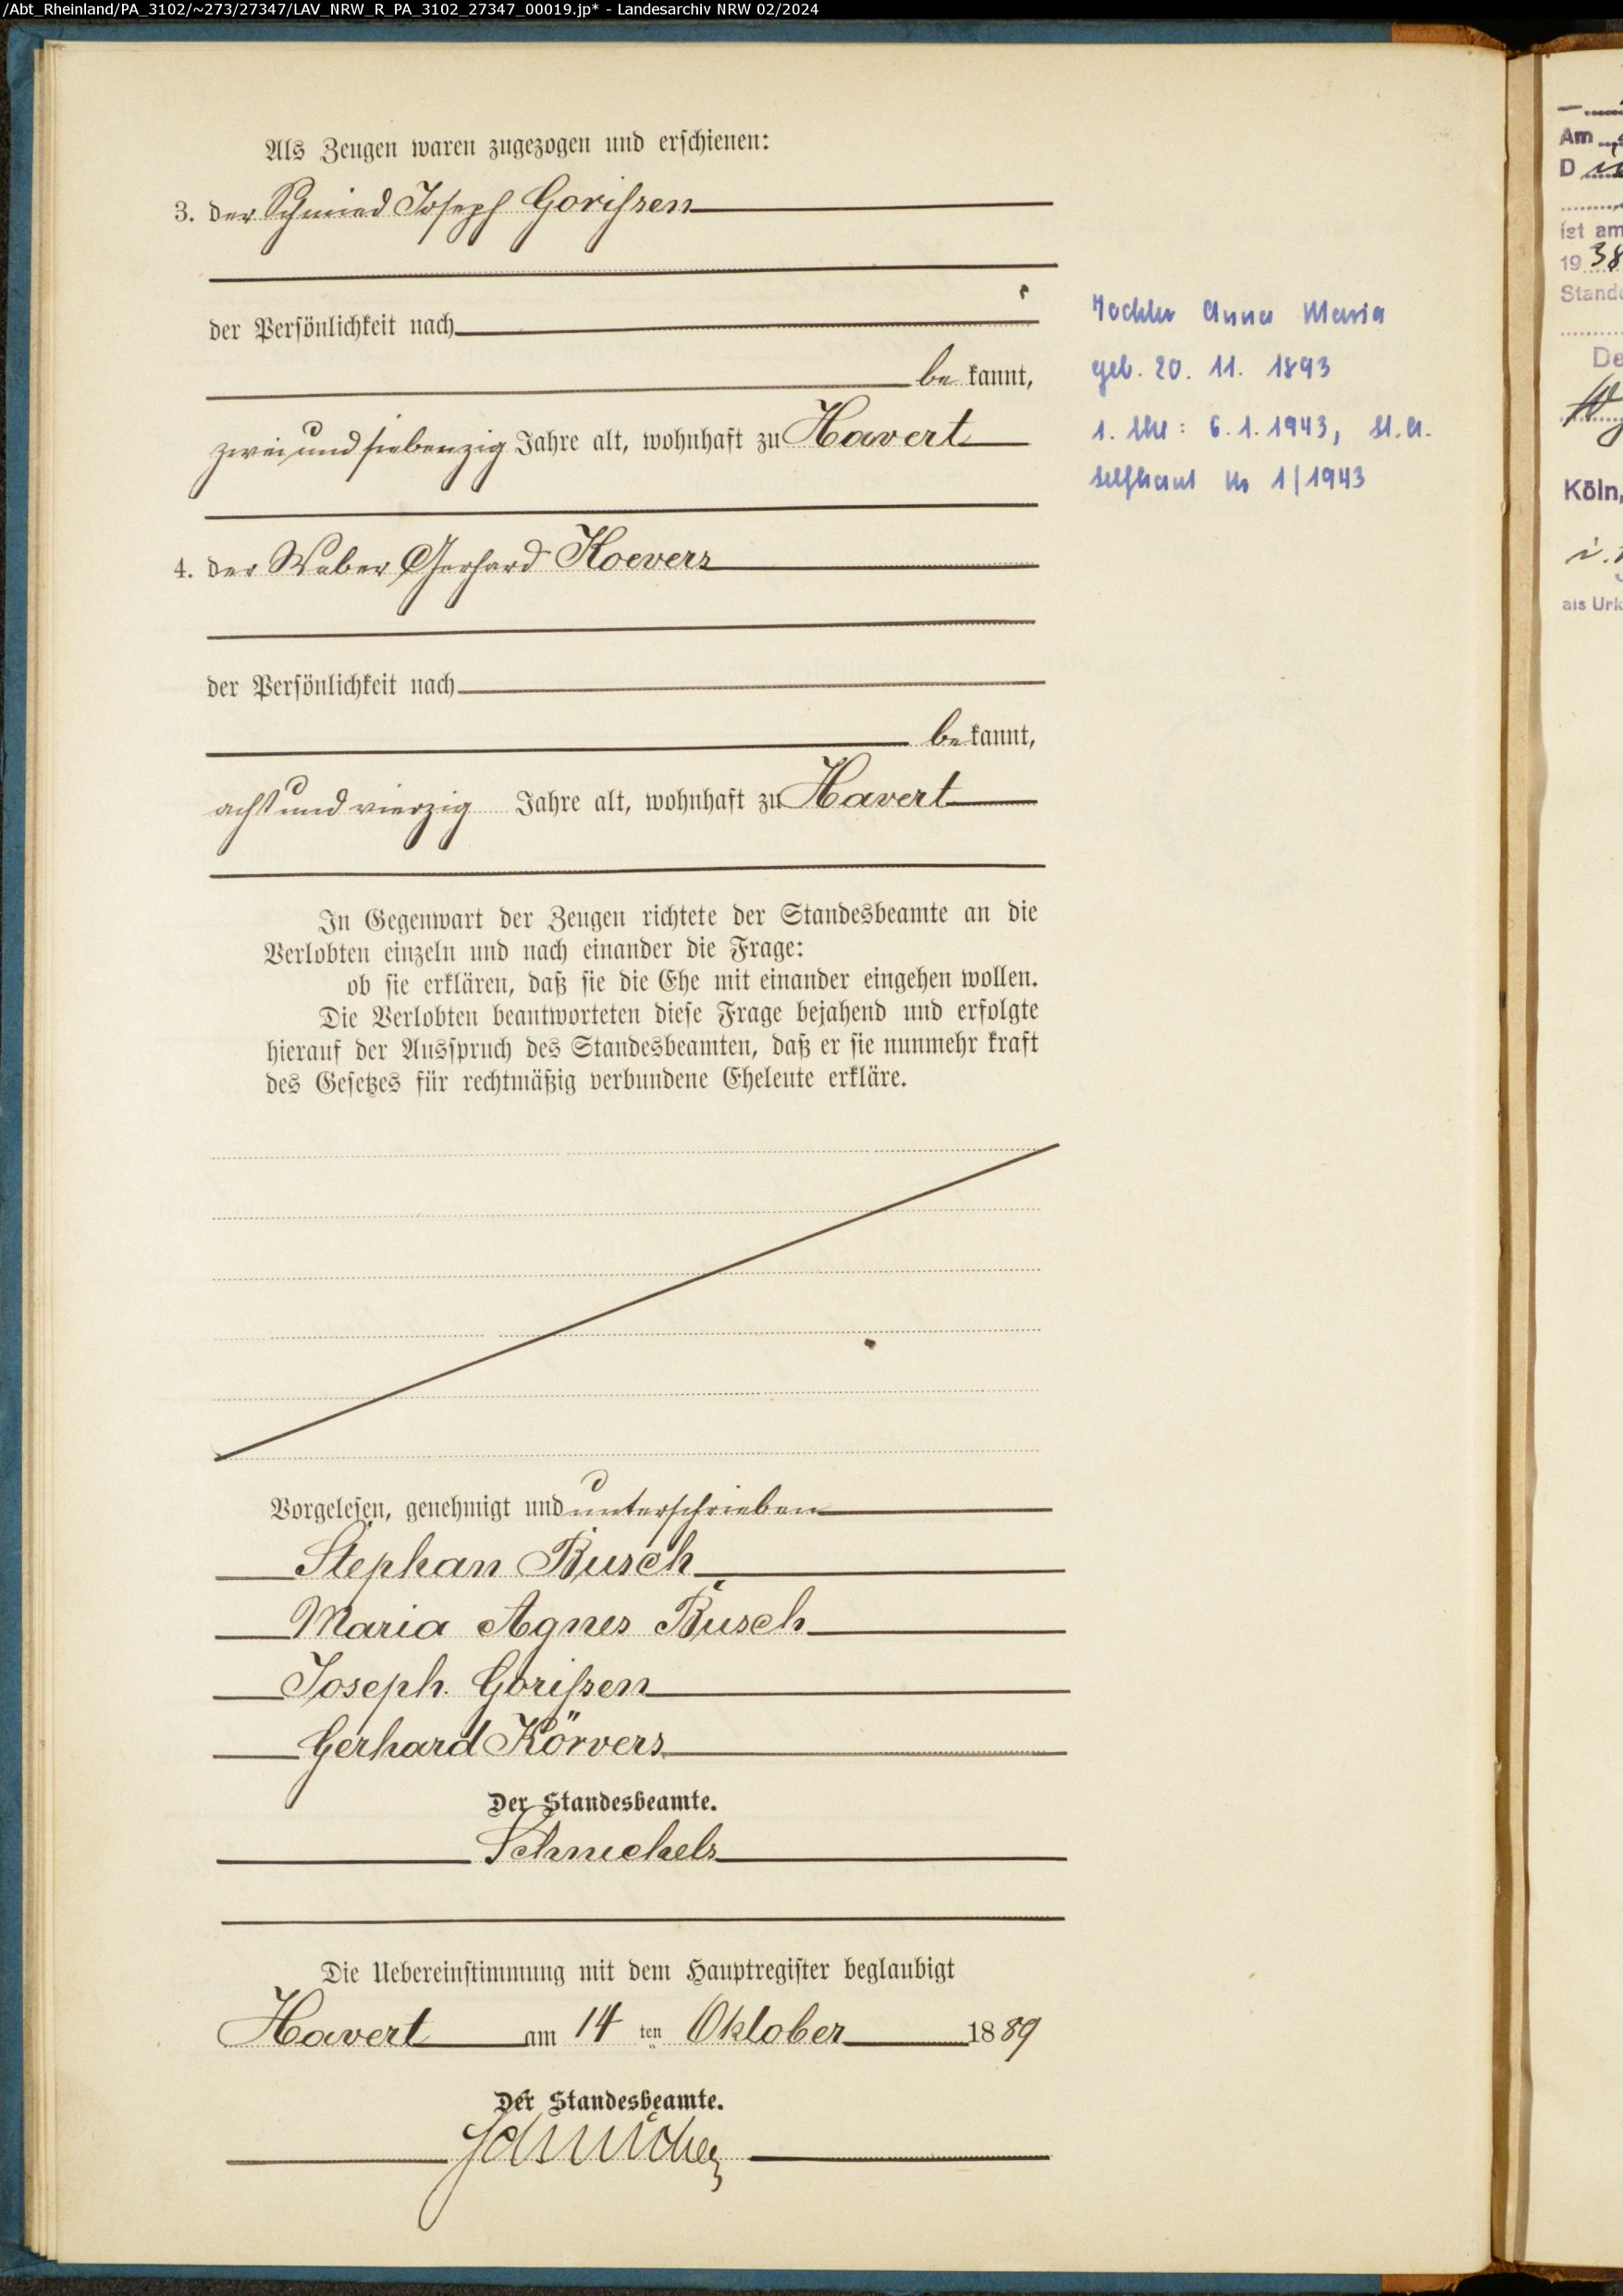 /Abt_Rheinland/PA_3102/~273/27347/LAV_NRW_R_PA_3102_27347_00019.jp* - Landesarchiv NRW 02/2024
Als Zeugen waren zugezogen und erschienen:
3. der Schmied Joseph Gorißen
der Persönlichkeit nach
be kannt,
zwei und siebenzig Jahre alt, wohnhaft zu Havert
4. der Weber Gerhard Koevers
der Persönlichkeit nach
be kannt,
acht und vierzig Jahre alt, wohnhaft zu Havert
In Gegenwart der Zeugen richtete der Standesbeamte an die
Verlobten einzeln und nach einander die Frage:
ob sie erklären, daß sie die Ehe mit einander eingehen wollen.
Die Verlobten beantworteten diese Frage bejahend und erfolgte
hierauf der Ausspruch des Standesbeamten, daß er sie nunmehr kraft
des Gesetzes für rechtmäßig verbundene Eheleute erkläre.
Vorgelesen, genehmigt und unterschrieben
Stephan Busch
Maria Agnes Busch
Joseph Gorißen
Gerhard Körvers
Der Standesbeamte.
Schmichels
Die Uebereinstimmung mit dem Hauptregister beglaubigt
Havert am 14 ten Oktober 1889
Der Standesbeamte.
Tochter Anna Maria
geb. 20. 11. 1893
1. Ehe: 6. 1. 1943, St. A.
Selfkant Nr 1/1943
Am
D
ist am
19 38
Köln,
als Urk